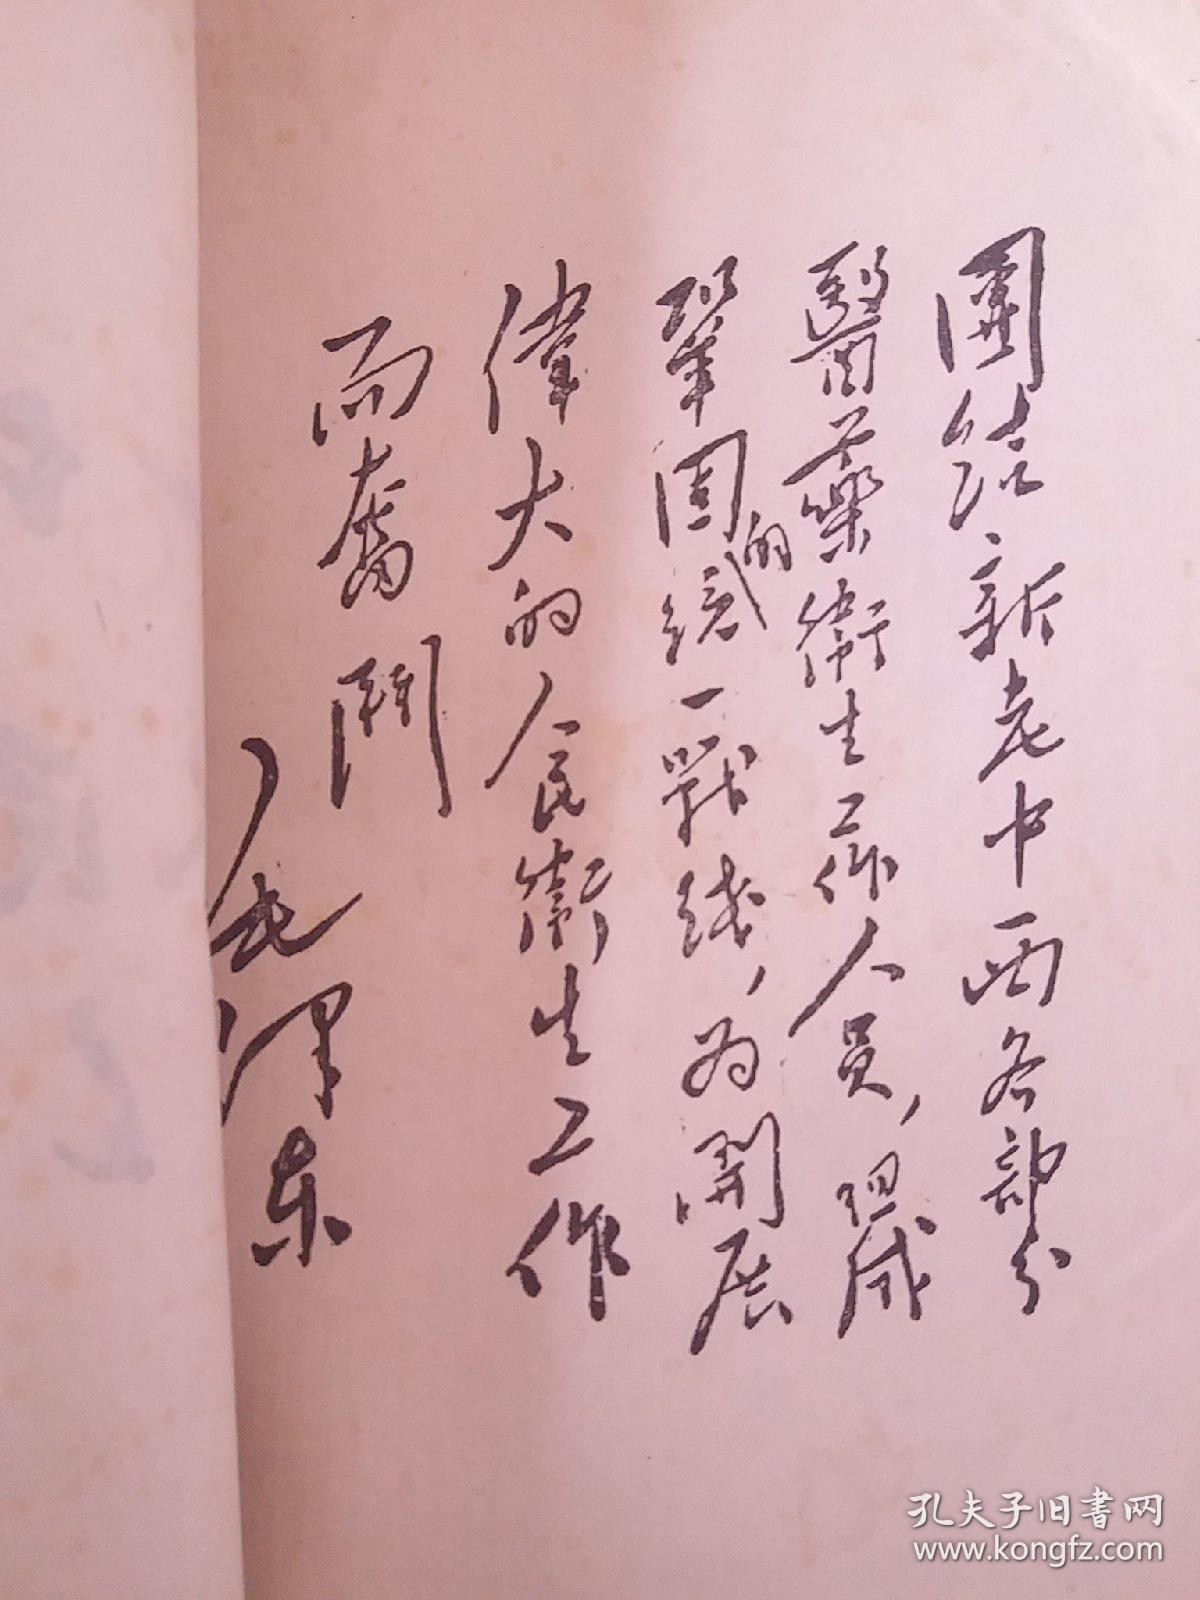 團结新老中西各部分
醫藥衛生工作人員，组成
鞏固的统一戰线，为開展
偉大的人民衛生工作
而奮鬥
毛澤东
孔夫子旧书网
www.kongfz.com